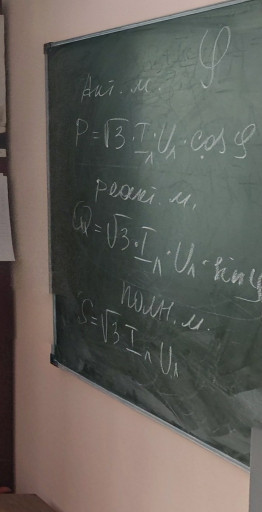 φ
Акт. м.
P=√3·Iл·Uл·cosφ
реакт. м.
Q=√3·Iл·Uл·sinφ
полн. м.
S=√3 Iл Uл